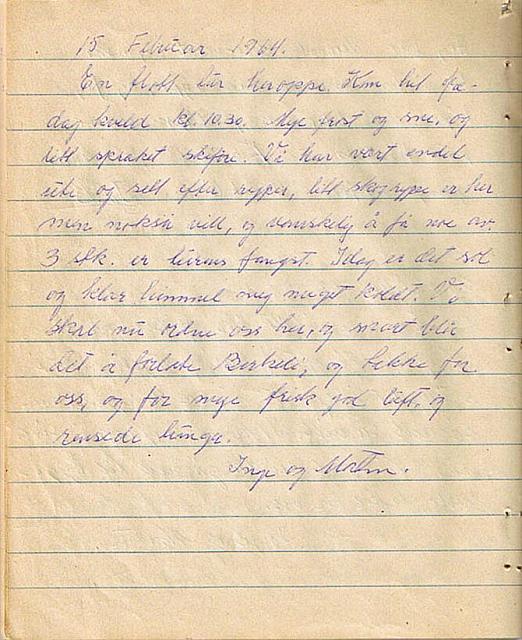 15 Februar 1964.
En flott tur heroppe. Kom hit fre-
dag kveld kl. 10.30. Mye frost og sne, og
litt sprøket skiføre. Vi har vært endel
ute og sett efter ryper, litt skogrype er her
men nokså vill, og vanskelig å få noe av.
3 stk. er turens fangst. Idag er det sol
og klar himmel meget koldt. Vi
skal nu ordne oss her, og snart blir
det å forlate Birkeli, og takke for
oss, og for mye frisk god luft, og
rensede lunger.
Inge og Morten.